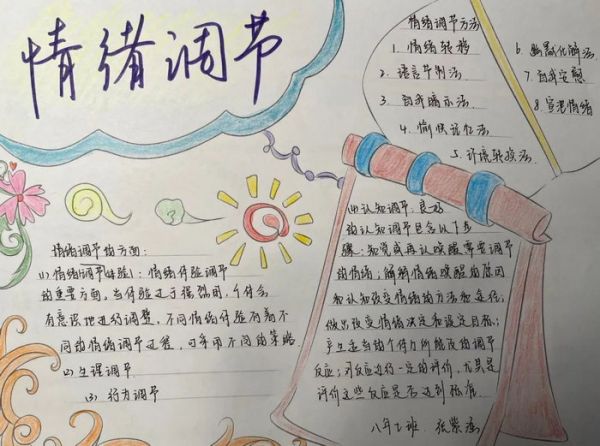 情绪调节
情绪调节方法
1. 情绪转移
2. 语言节制法
3. 自我暗示法
4. 愉快记忆法
5. 环境转换法
6. 幽默化解法
7. 自我安慰
8. 宣泄情绪
情绪调节的方面:
(1) 情绪调节体验: 情绪体验调节
的重要方面,当体验过于强烈时,个体会
有意识地进行调整,不同情绪体验有着不
同的情绪调节过程,可采用不同的策略
(2) 生理调节
(3) 行为调节
(4) 认知调节: 良好
的认知调节包含以下步
骤: 知觉或再认唤醒需要调节
的情绪; 解释情绪唤醒的原因
和认知改变情绪的方法和途径;
做出改变情绪决定和设定目标;
产生适当的个体力所能及的调节
反应; 对反应进行一定的评价,尤其是
评价这些反应是否达到标准.
八年七班